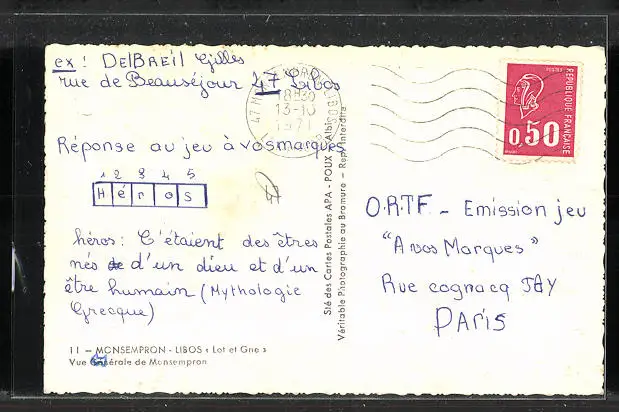 ex : DelBreil Gilles
rue de Beauséjour 47 Libos
18H30
13-10
1971
POSTES
RÉPUBLIQUE FRANÇAISE
0,50
Réponse au jeu à vos marques
1 2 3 4 5
Héros
47
héros : C'étaient des êtres
nés de d'un dieu et d'un
être humain (Mythologie
Grecque)
Sté des Cartes Postales APA - POUX - Albi
Véritable Photographie au Bromure - Repr. Interdite
O.R.T.F. - Emission jeu
"A vos Marques"
Rue cognacq JAY
PARIS
11 - MONSEMPRON - LIBOS « Lot et Gne »
Vue Générale de Monsempron